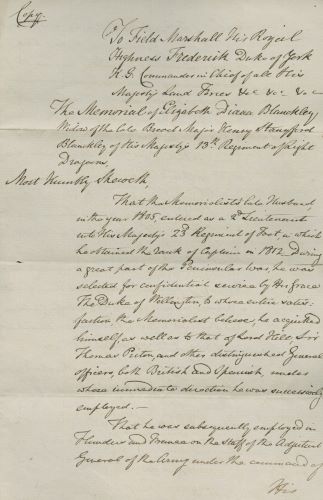 Copy.
To Field Marshall His Royal
Highness Frederick Duke of York
K.G. Commander in Chief of all His
Majesty's Land Forces &c &c &c
The Memorial of Elizabeth Diana Blanckley,
Widow of the late Brevet Major Henry Stanyford
Blanckley of His Majesty's 13th Regiment of Light
Dragoons,
Most Humbly Sheweth,
That the Memorialist's late Husband
in the year 1805, entered as a 2d Lieutenant
into His Majesty's 23 Regiment of Foot in which
he obtained the rank of Captain in 1812. During
a great part of the Peninsular War, he was
selected for confidential service by His Grace
The Duke of Wellington, to whose entire satis-
faction the Memorialist believes, he acquitted
himself as well as to that of Lord Hill, Sir
Thomas Picton and other distinguished General
officers, both British and Spanish, under
whose immediate direction he was successively
employed.—
That he was subsequently employed in
Flanders and France on the Staff of the Adjutant
General of the Army under the command of
His